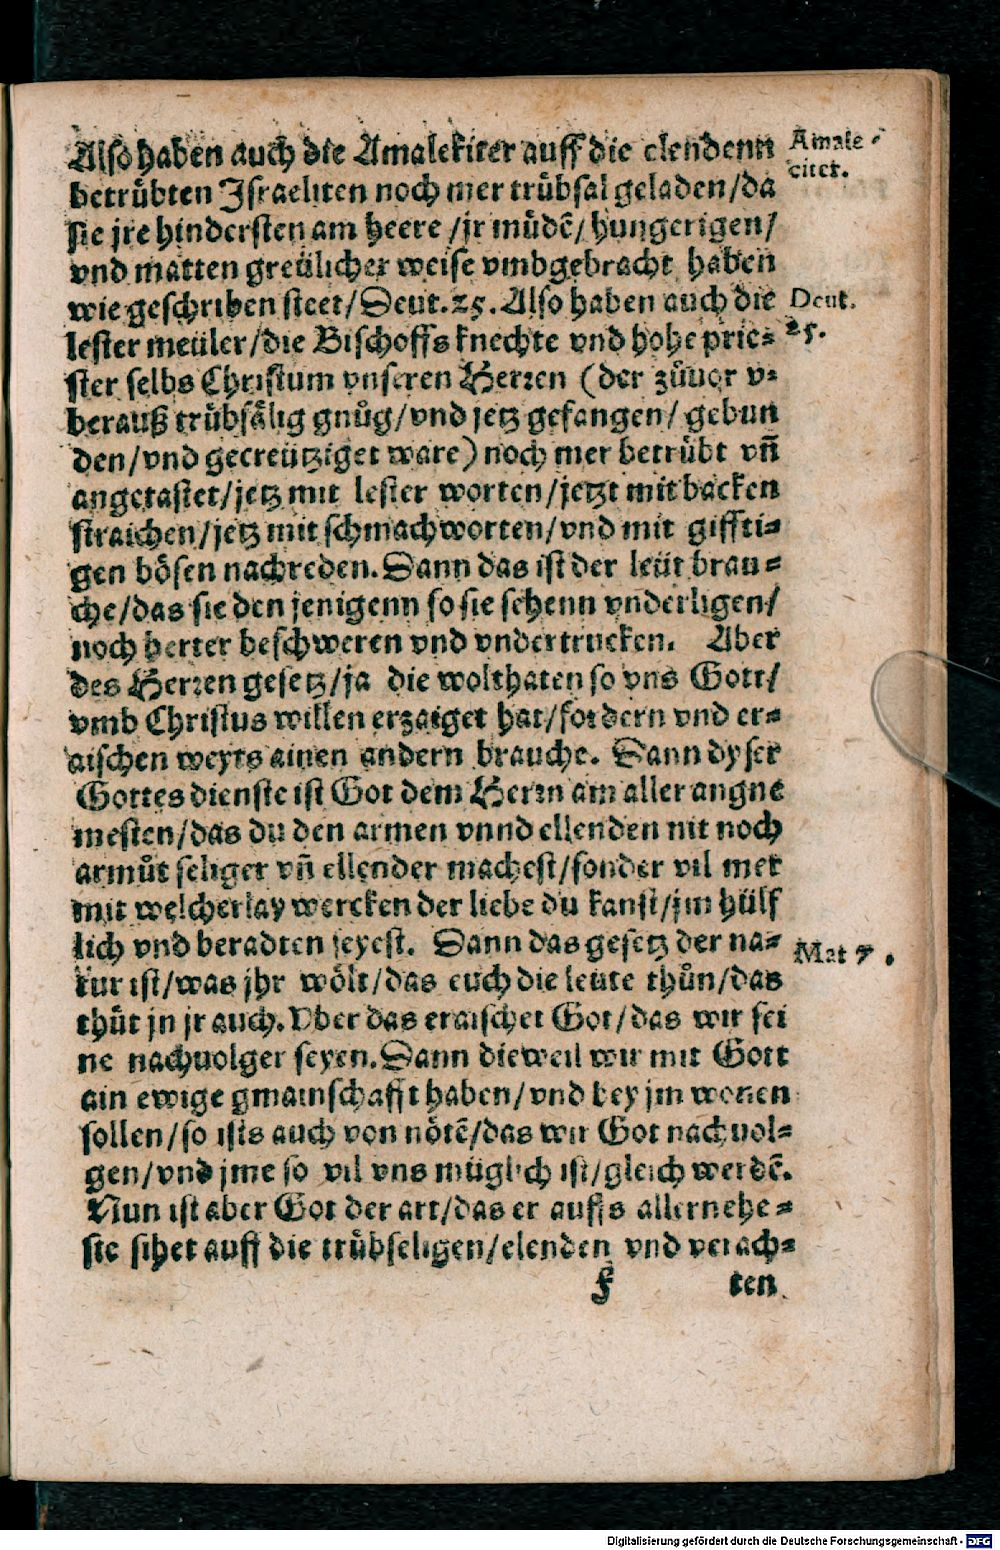 Also haben auch die Amalekiter auff die elendenn
betrübten Israeliten noch mer trübsal geladen/da
sie jre hindersten am heere /jr müdē/ hungerigen/
vnd matten greülicher weise vmbgebracht haben
wie geschriben steet/Deut.25. Also haben auch die
lester meüler/die Bischoffs knechte vnd hohe prie-
ster selbs Christum vnseren Herren (der zůuor v-
berauß trübsälig gnůg/vnd jetz gefangen/ gebun
den/vnd gecreütziget ware) noch mer betrübt vñ
angetastet/jetz mit lester worten/jetzt mit backen
straichen/jetz mit schmachworten/vnd mit giffti-
gen bösen nachreden. Dann das ist der leüt brau-
che/das sie den jenigenn so sie sehenn vnderligen/
noch herter beschweren vnd vndertrucken. Aber
des Herren gesetz/ja die wolthaten so vns Gott/
vmb Christus willen erzaiget hat/fordern vnd er-
aischen weyts ainen andern brauche. Dann dyser
Gottes dienste ist Got dem Herrn am aller angne
mesten/das du den armen vnnd ellenden nit noch
armůt seliger vñ ellender machest/sonder vil mer
mit welcherlay wercken der liebe du kanst/jm hülf
lich vnd beradten seyest. Dann das gesetz der na-
tur ist/was jhr wölt/das euch die leute thůn/das
thüt jn jr auch. Vber das eraischet Got/das wir sei
ne nachuolger seyen. Dann dieweil wir mit Gott
ain ewige gmainschafft haben/vnd bey jm wonen
sollen/so ists auch von nötē/das wir Got nachuol-
gen/vnd jme so vil vns müglich ist/gleich werdē.
Nun ist aber Got der art/das er auffs allernehe-
ste sihet auff die trübseligen/elenden vnd verach-
f ten
Amale-
citer.
Deut.
25.
Mat 7.
Digitalisierung gefördert durch die Deutsche Forschungsgemeinschaft - DFG